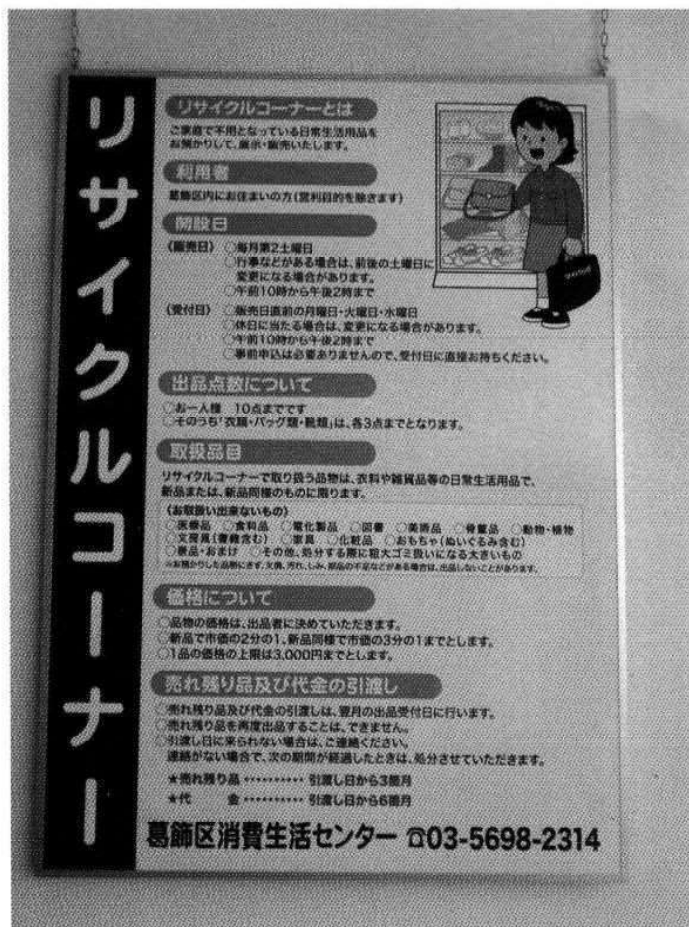 リサイクルコーナー
リサイクルコーナーとは
ご家庭で不用となっている日常生活用品を
お預かりして、展示・販売いたします。
利用者
葛飾区内にお住まいの方(営利目的を除きます)
開設日
(販売日) ○毎月第2土曜日
○行事などがある場合は、前後の土曜日に
変更になる場合があります。
○午前10時から午後2時まで
(受付日) ○販売日直前の月曜日・火曜日・水曜日
○休日に当たる場合は、変更になる場合があります。
○午前10時から午後2時まで
○事前申込は必要ありませんので、受付日に直接お持ちください。
出品点数について
○お一人様 10点までです
○そのうち「衣類・バッグ類・靴類」は、各3点までとなります。
取扱品目
リサイクルコーナーで取り扱う品物は、衣料や雑貨品等の日常生活用品で、
新品または、新品同様のものに限ります。
(お取扱い出来ないもの)
○医療品 ○食料品 ○電化製品 ○図書 ○美術品 ○骨董品 ○動物・植物
○文房具(書籍含む) ○家具 ○化粧品 ○おもちゃ(ぬいぐるみ含む)
○景品・おまけ ○その他、処分する際に粗大ゴミ扱いになる大きいもの
※お預かりした品物にきず、欠損、汚れ、しみ、部品の不足などがある場合は、出品しないことがあります。
価格について
○品物の価格は、出品者に決めていただきます。
○新品で市価の2分の1、新品同様で市価の3分の1までとします。
○1品の価格の上限は3,000円までとします。
売れ残り品及び代金の引渡し
○売れ残り品及び代金の引渡しは、翌月の出品受付日に行います。
○売れ残り品を再度出品することは、できません。
○引渡し日に来られない場合は、ご連絡ください。
連絡がない場合で、次の期間が経過したときは、処分させていただきます。
★売れ残り品 ・・・・・・・・・・ 引渡し日から3箇月
★代 金 ・・・・・・・・・・ 引渡し日から6箇月
葛飾区消費生活センター ☎03-5698-2314